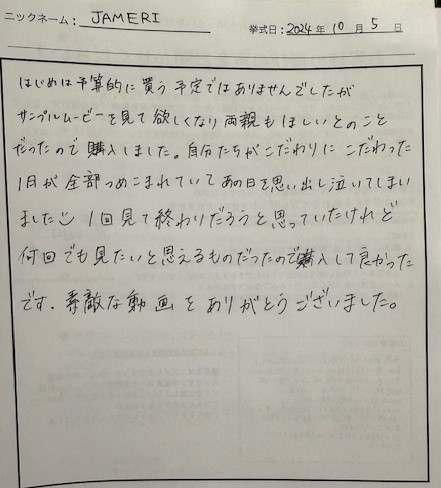 ニックネーム: JAMERI
挙式日: 2024年 10月 5日
はじめは予算的に買う予定ではありませんでしたが
サンプルムービーを見て欲しくなり両親もほしいとのこと
だったので購入しました。自分たちがこだわりにこだわった
1日が全部つめこまれていてあの日を思い出し泣いてしまい
ました 1回見て終わりだろうと思っていたけれど
何回でも見たいと思えるものだったので購入して良かった
です. 素敵な動画をありがとうございました。